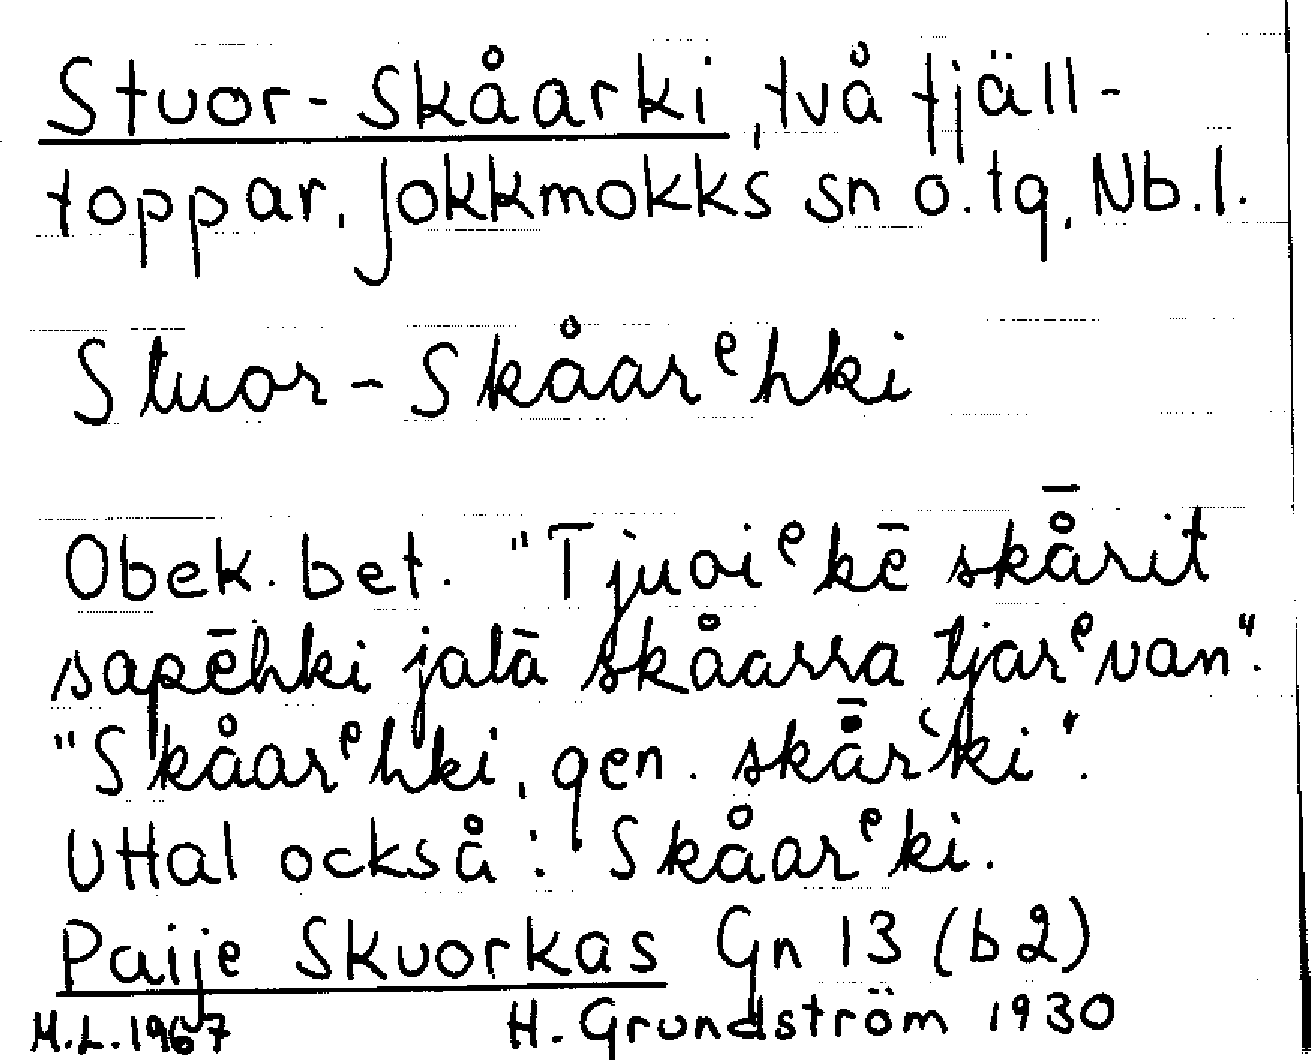 Stuor-Skåarki, två fjäll-
toppar. Jokkmokks sn o. tg, Nb.l.
Stuor-Skåarᵉhki
Obek. bet. "Tjuoiᵉkē skå̄rit
sapēhki jalā skåarra tjarᵉvan".
"Skåarᵉhki, gen. skå̄rʽki".
Uttal också: Skåarᵉki.
Paije Skuorkas Gn 13 (b2)
M.L.1967 H. Grundström 1930